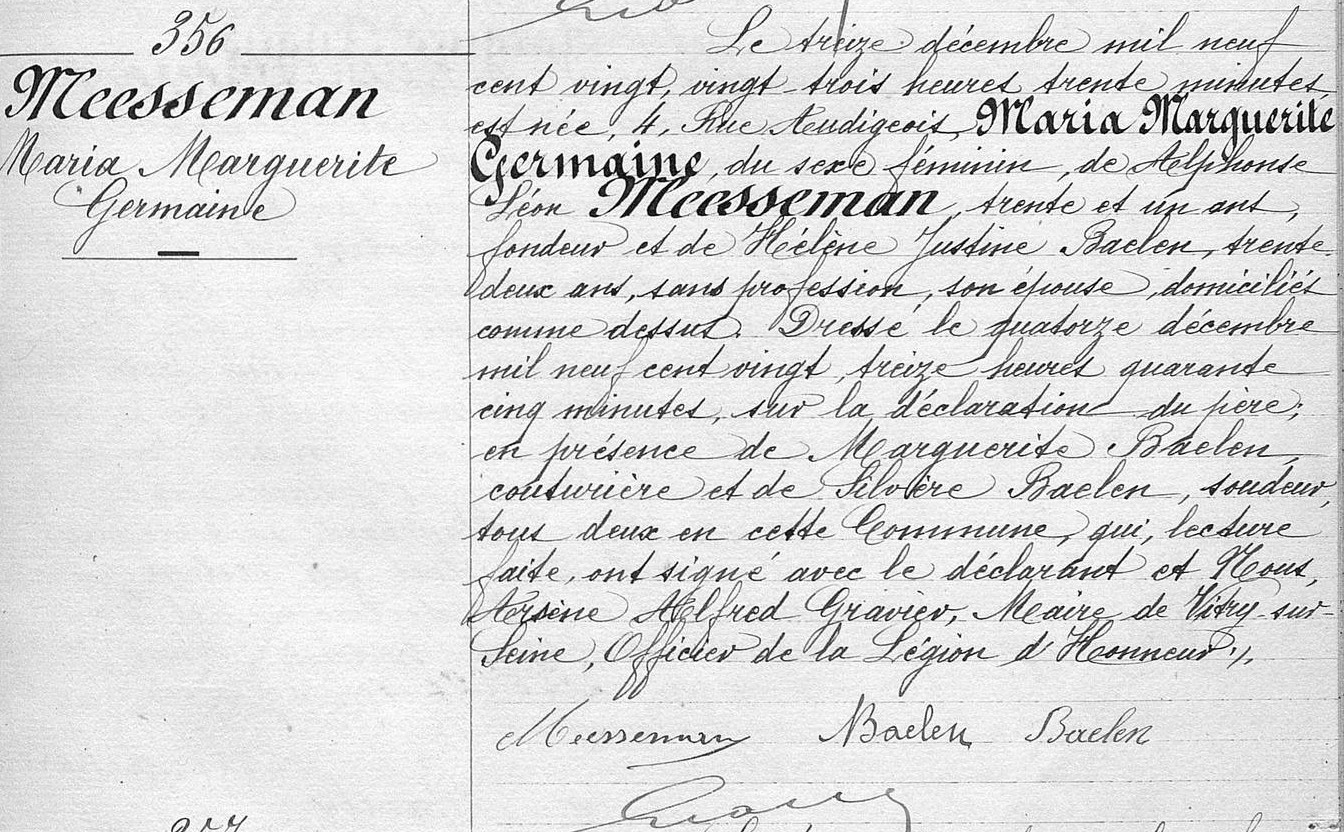 356
Meesseman
Maria Marguerite
Germaine
Le treize décembre mil neuf
cent vingt, vingt-trois heures trente minutes,
est née, 4, Rue Audigeois, Maria Marguerite
Germaine, du sexe féminin, de Alphonse
Léon Meesseman, trente et un ans,
fondeur et de Hélène Justine Baelen, trente-
deux ans, sans profession, son épouse, domiciliés
comme dessus. Dressé le quatorze décembre
mil neuf cent vingt, treize heures quarante
cinq minutes, sur la déclaration du père;
en présence de Marguerite Baelen,
couturière et de Silvère Baelen, soudeur,
tous deux en cette Commune, qui, lecture
faite, ont signé avec le déclarant et Nous,
Arsène Alfred Gravier, Maire de Vitry-sur-
Seine, Officier de la Légion d'Honneur./.
Meesseman Baelen Baelen